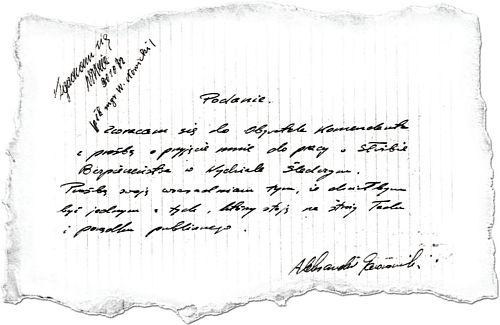 Zgadzam się
30.10.82
płk mgr W.
Podanie.
Zwracam się do Obywatela Komendanta
z prośbą o przyjęcie mnie do pracy w Służbie
Bezpieczeństwa w Wydziale Śledczym.
Prośbę swą uzasadniam tym, iż chciałbym
być jednym z tych, którzy stoją na straży Ładu
i porządku publicznego.
Aleksander